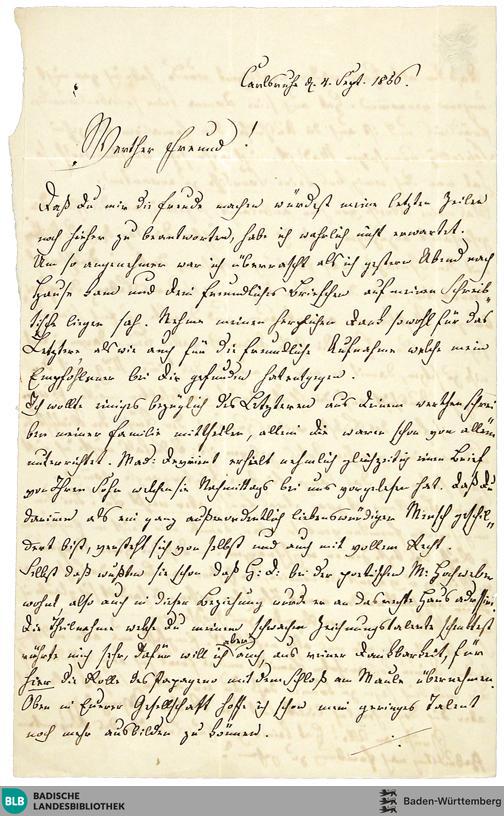 Carlsruhe d. 4. Sept. 1866.
Werther Freund!
Daß Du mir die Freude machen würdest meine letzten Zeilen
noch hieher zu beantworten, habe ich wahrlich nicht erwartet.
Um so angenehmer war ich überrascht als ich gestern Abend nach
Hause kam und Dein freundliches Briefchen auf meinem Schreib
tische liegen sah. Nehme meinen herzlichen Dank sowohl für das
Letztere als wie auch für die freundliche Aufnahme welche mein
Empfohlener bei Dir gefunden hat entgegen.
Ich wollte einiges bezüglich des Letzteren aus Deinem werthen Schrei
ben meiner Familie mittheilen, allein die waren schon von allem
unterrichtet. Mad: Devrient erhielt nehmlich gleichzeitig einen Brief
von Ihrem Sohn welchen sie Nachmittags bei uns vorgelesen hat. Daß Du
darinnen als ein ganz außerordentlich liebenswürdiger Mensch geschil„
dert bist, versteht sich von selbst und auch mit vollem Recht.
Selbst daß wußten sie schon daß H: D: bei der poetischen
wohnt, also auch in dieser Beziehung wurde er an das rechte Haus
Die Theilnahme welche Du meinem schwachen Zeichnungstalente schenktest
rührte mich sehr, dafür will ich aber auch, aus reiner Dankbarkeit, für
hier die Rolle des Papageno mit dem Schloß am Maule übernehmen
Oben in Eurer Gesellschaft hoffe ich schon mein geringes Talent
noch mehr ausbilden zu können.
BLB BADISCHE
LANDESBIBLIOTHEK
Baden-Württemberg